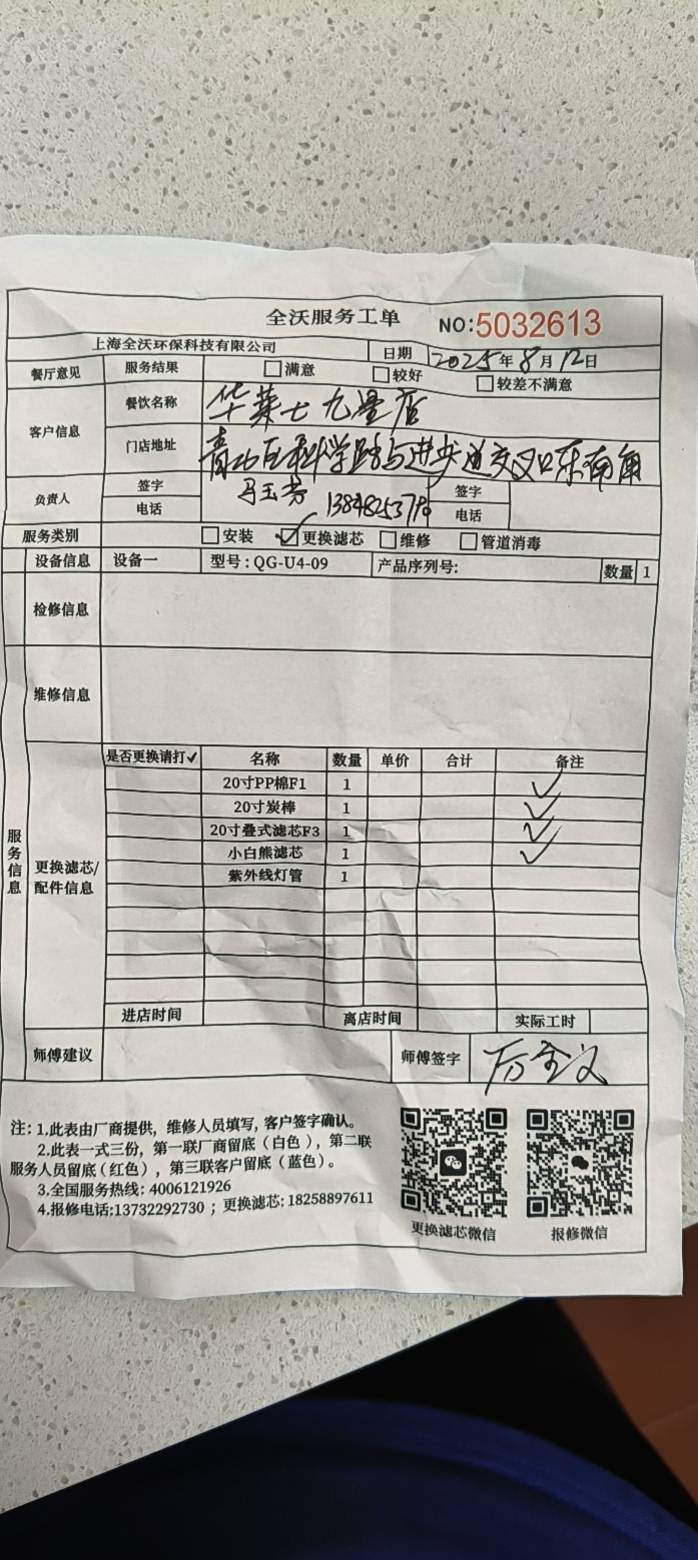 全沃服务工单 NO:5032613
上海全沃环保科技有限公司 日期 2025年8月12日
餐厅意见 服务结果 □满意 □较好 □较差不满意
客户信息 餐饮名称 华莱士九星店
门店地址 青山区科学路与进步道交叉口东南角
负责人 签字 马玉芳 签字
电话 电话
服务类别 □安装 ☑更换滤芯 □维修 □管道消毒
服务信息
设备信息 设备一 型号:QG-U4-09 产品序列号: 数量 1
检修信息
维修信息
更换滤芯/配件信息
是否更换请打✓ 名称 数量 单价 合计 备注
20寸PP棉F1 1 ✓
20寸炭棒 1 ✓
20寸叠式滤芯F3 1 ✓
小白熊滤芯 1 ✓
紫外线灯管 1
进店时间 离店时间 实际工时
师傅建议 师傅签字
注: 1.此表由厂商提供，维修人员填写，客户签字确认。
2.此表一式三份，第一联厂商留底（白色），第二联
服务人员留底（红色），第三联客户留底（蓝色）。
3.全国服务热线: 4006121926
4.报修电话:13732292730 ；更换滤芯: 18258897611
更换滤芯微信 报修微信